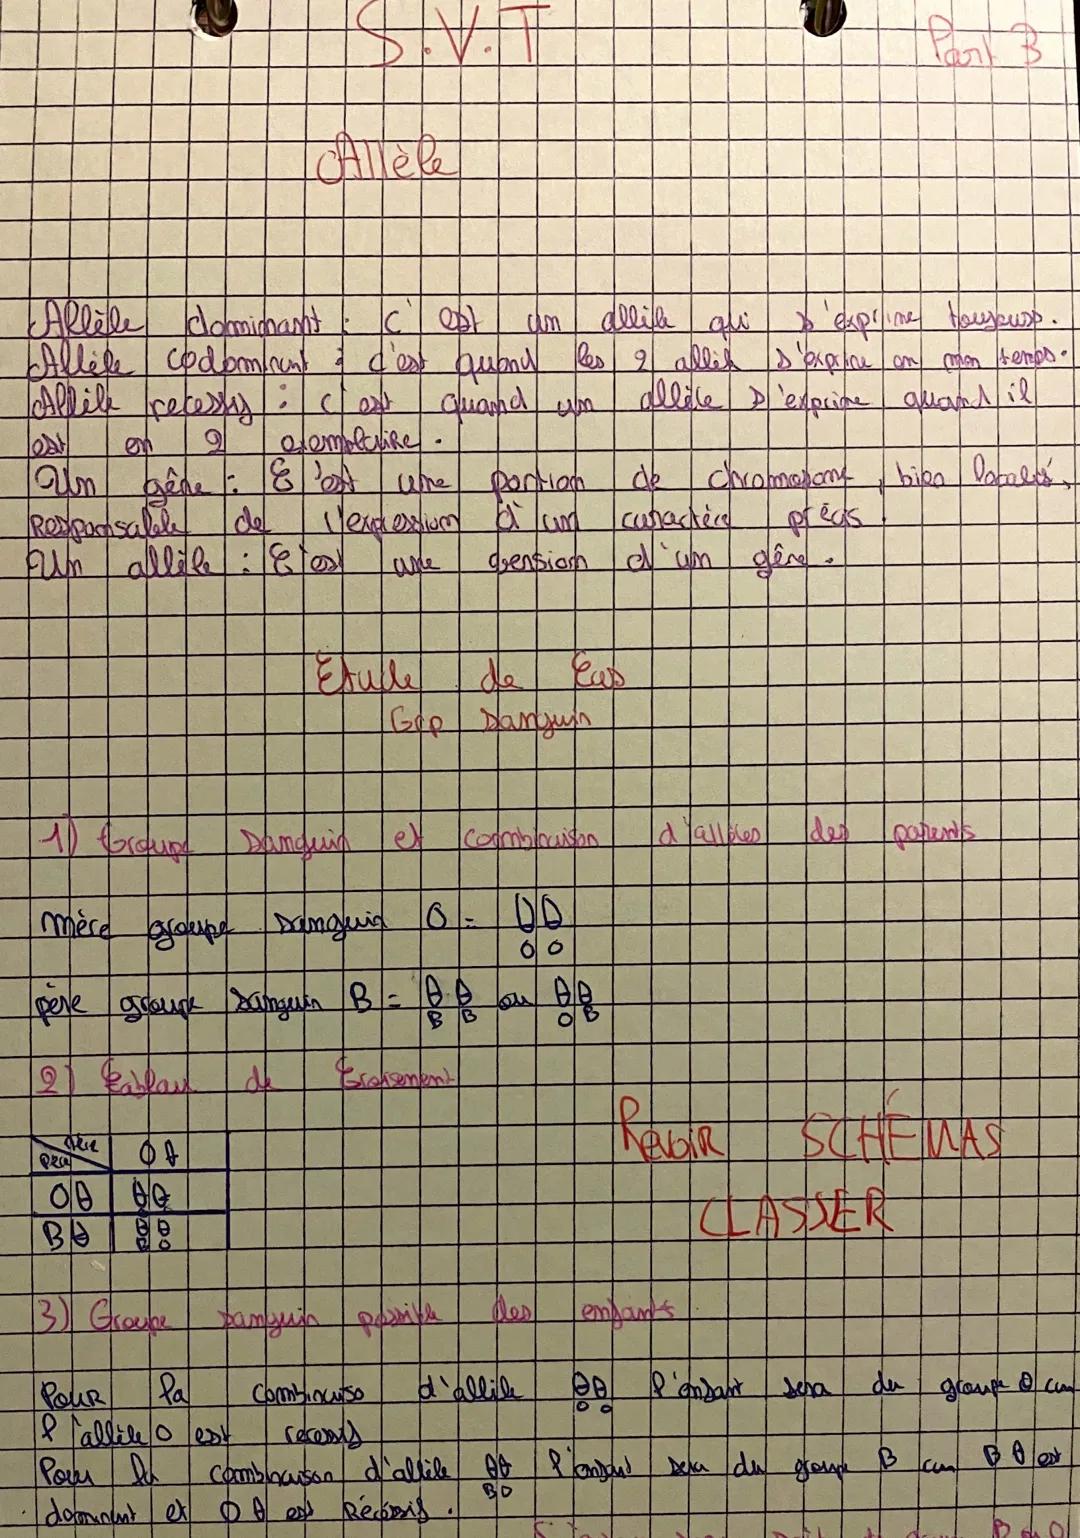 S.V.T
Part 3
Allèle
Allèle dominant : c'est un allèle qui s'exprime toujours.
Allèle codominant : c'est quand les 2 allèls s'exprime en mm temps.
Allèle recessif : c'est quand un allèle s'exprime quand il
est en 2 exemplaire.
Un gêne : C'est une portion de chromosome, bien localisé,
Responsable de l'expression d'un caractère précis
Un allèle : C'est une version d'un gêne.
Etude de Cas
Grp Sanguin
1) Groupe Sanguin et combinaison d'allèles des parents
mère groupe sanguin O =
O O
père groupe sanguin B = ou
B B O B
2) tableau de Croisement
Revoir SCHÉMAS
mère
père
O
O
B
B O
CLASSER
3) Groupe sanguin possible des enfants
Pour la combinaiso d'allèle l'enfant sera du groupe O car
O O
l'allèle O est recessif
Pour la combinaison d'allèle l'enfant sera du groupe B car B est
B O
dominant et O est Récessif.